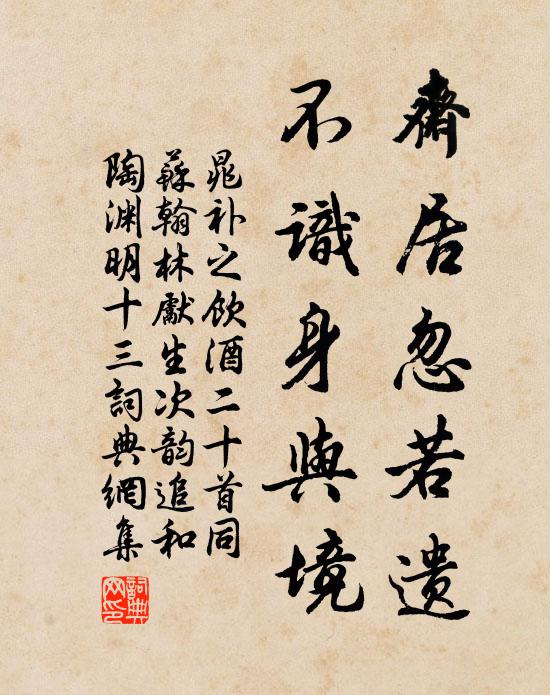 齋居忽若遗
不識身與境
晁补之飲酒二十首同
蘇翰林獻生次韵追和
陶渊明十三詞典網集
詞典网印